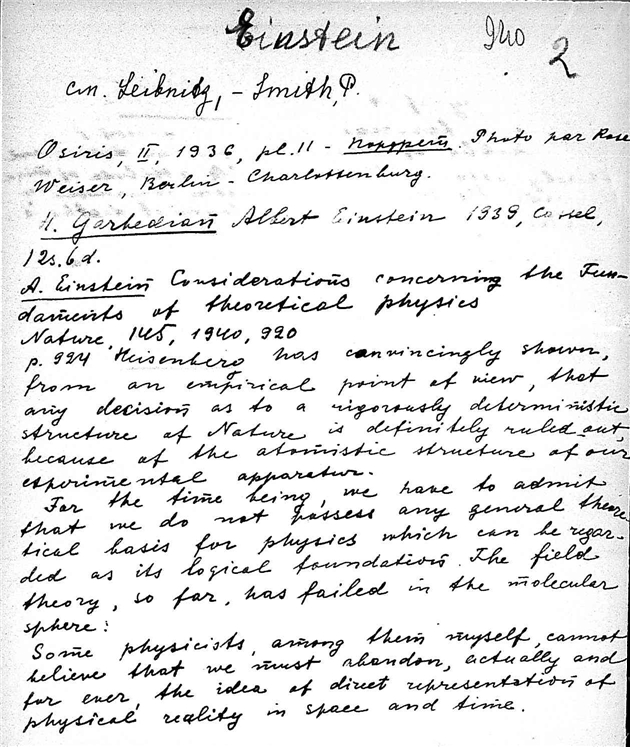 Einstein 940 2
см. Leibnitz, - Smith, P.
Osiris, II, 1936, pl. 11 - портрет. Photo par Rose
Weiser, Berlin - Charlottenburg.
H. Garbedian Albert Einstein 1939, Cassel,
12s. 6d.
A. Einstein Considerations concerning the Fun-
daments of theoretical physics
Nature, 145, 1940, 920
p. 924 Heisenberg has convincingly shown,
from an empirical point of view, that
any decision as to a rigorously deterministic
structure of Nature is definitely ruled out,
because of the atomistic structure of our
experimental apparatus.
For the time being, we have to admit
that we do not possess any general theore-
tical basis for physics which can be regar-
ded as its logical foundation. The field
theory, so far, has failed in the molecular
sphere:
Some physicists, among them myself, cannot
believe that we must abandon, actually and
for ever, the idea of direct representation of
physical reality in space and time.